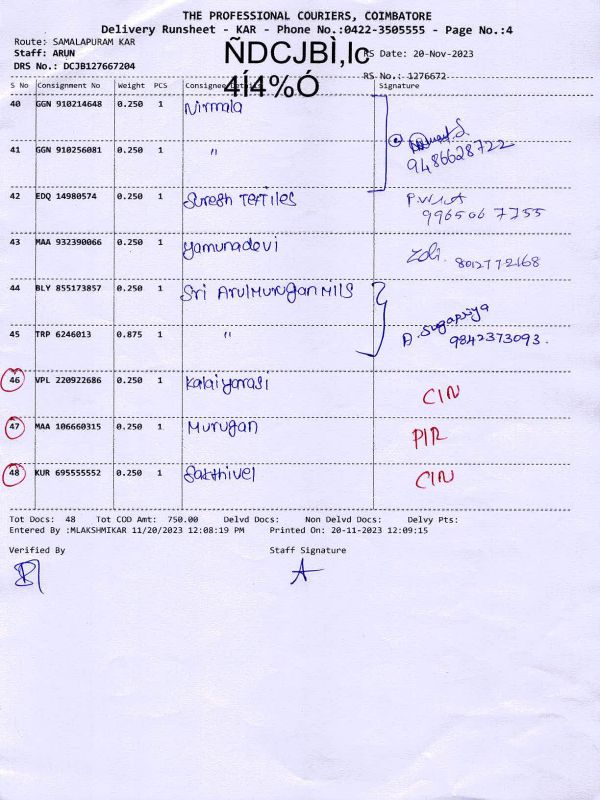 THE PROFESSIONAL COURIERS, COIMBATORE
Delivery Runsheet - KAR - Phone No.:0422-3505555 - Page No.:4
Route: SAMALAPURAM KAR
Staff: ARUN
RS Date: 20-Nov-2023
DRS No.: DCJB127667204
ÑDCJBÌ,lc
4Í4%Ó
RS No.: 1276672
S No Consignment No Weight PCS Consignee Details Signature
40 GGN 910214648 0.250 1 Nirmala
41 GGN 910256081 0.250 1 "
9486628722
42 EDQ 14980574 0.250 1 Suresh TexTiles
996506 7755
43 MAA 932390066 0.250 1 yamunadevi
8012772168
44 BLY 855173857 0.250 1 Sri ArulMurugan Mills
45 TRP 6246013 0.875 1 "
A. Sugapriya
9842373093.
46 VPL 220922686 0.250 1 Kalaiyarasi CIN
47 MAA 106660315 0.250 1 Murugan PIR
48 KUR 695555552 0.250 1 Sakthivel CIN
Tot Docs: 48 Tot COD Amt: 750.00 Delvd Docs: Non Delvd Docs: Delvy Pts:
Entered By :MLAKSHMIKAR 11/20/2023 12:08:19 PM Printed On: 20-11-2023 12:09:15
Verified By Staff Signature